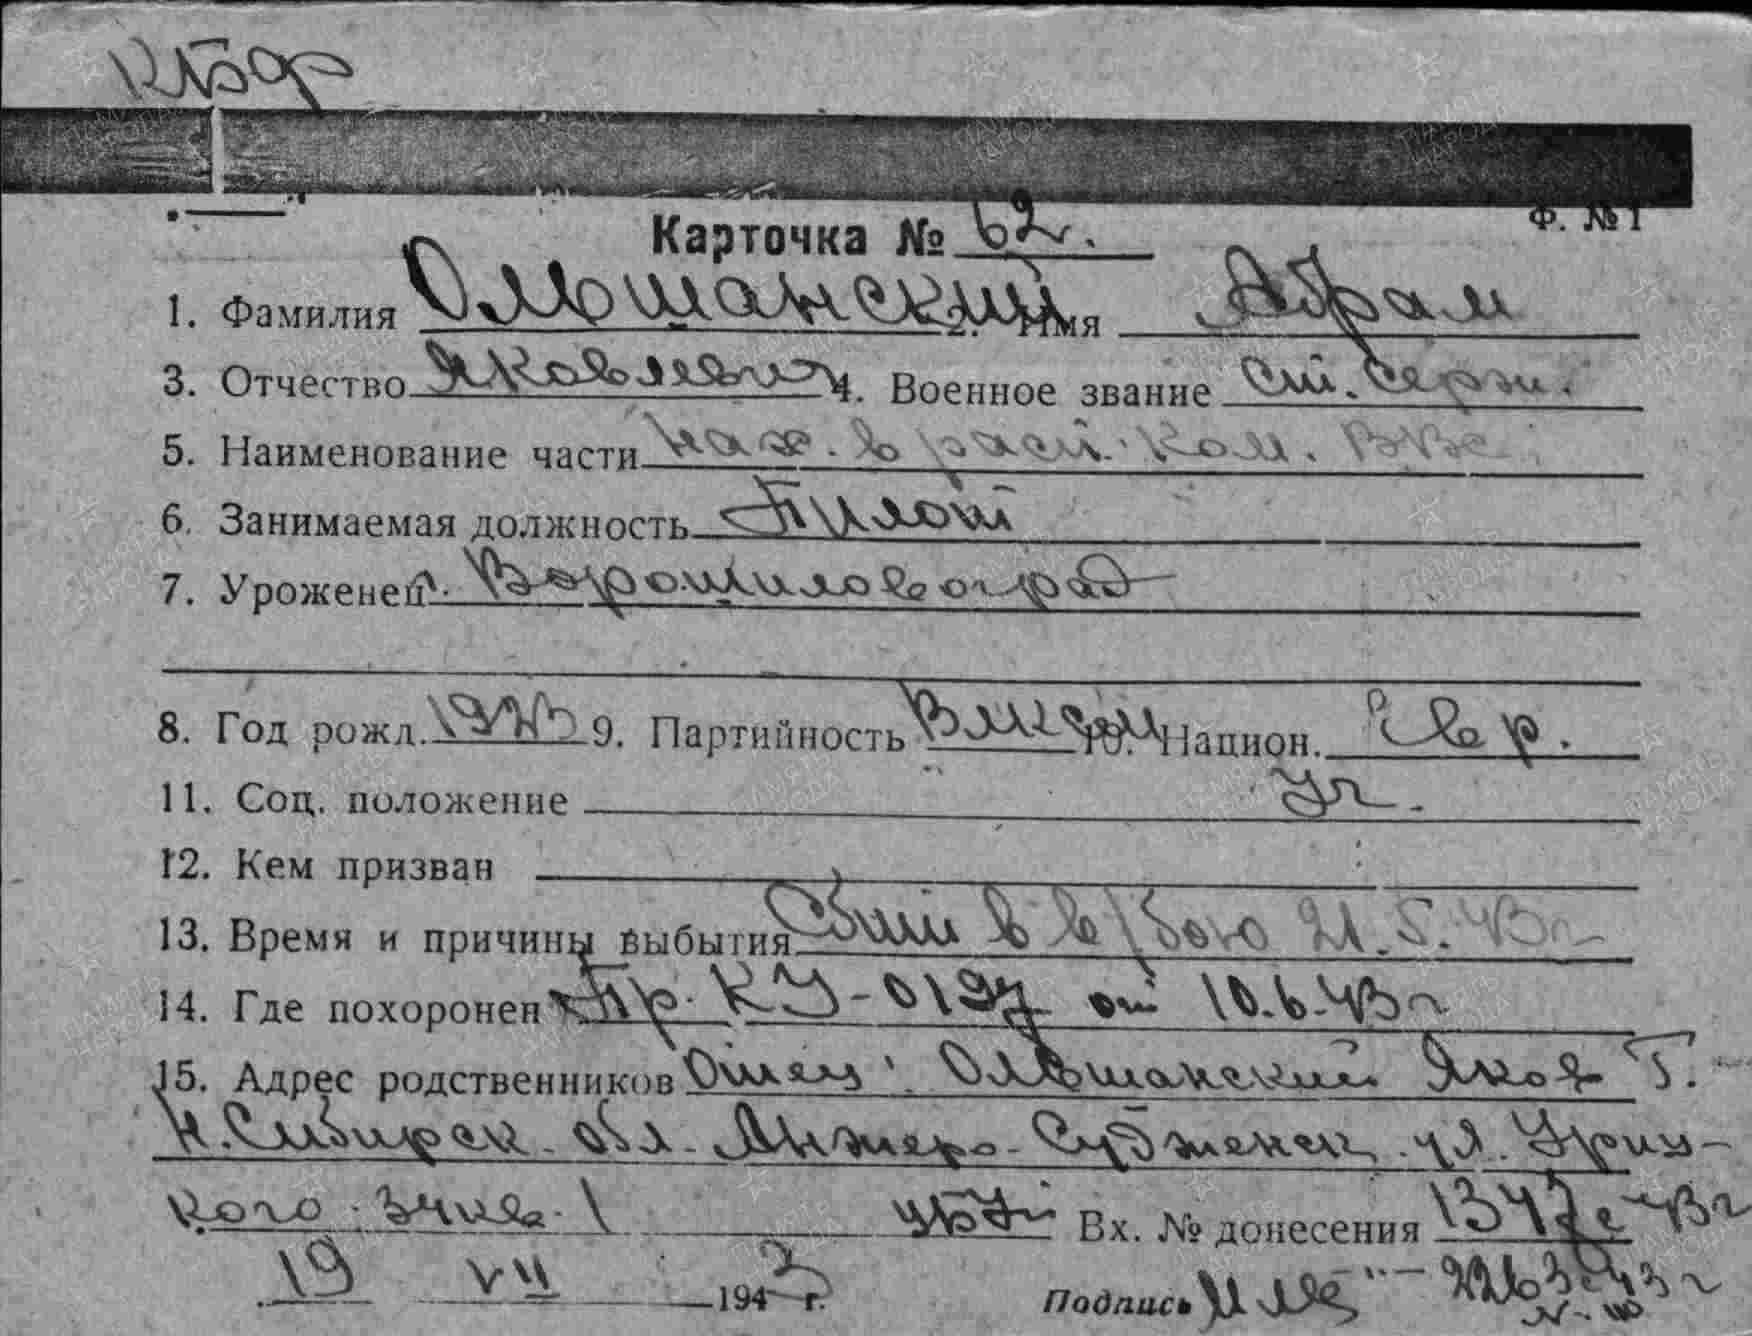 Ф. № 1
Карточка № 62.
1. Фамилия Ольшанский 2. Имя Абрам
3. Отчество Яковлевич 4. Военное звание Ст. Серж.
5. Наименование части нах. в расп. ком. ВВС
6. Занимаемая должность Пилот
7. Уроженец г. Ворошиловоград
8. Год рожд. 9. Партийность ВЛКСМ 10. Национ. Евр.
11. Соц. положение Уч.
12. Кем призван
13. Время и причины выбытия Сбит в в/бою 21.5.43г
14. Где похоронен Пр. КУ-0197 от 10.6.43г
15. Адрес родственников Отец: Ольшанский Яков Г.
Н. Сибирск. обл. Анжеро-Судженск, ул. Уриц-
кого Вх. № донесения
19 VII 1943 г. Подпись